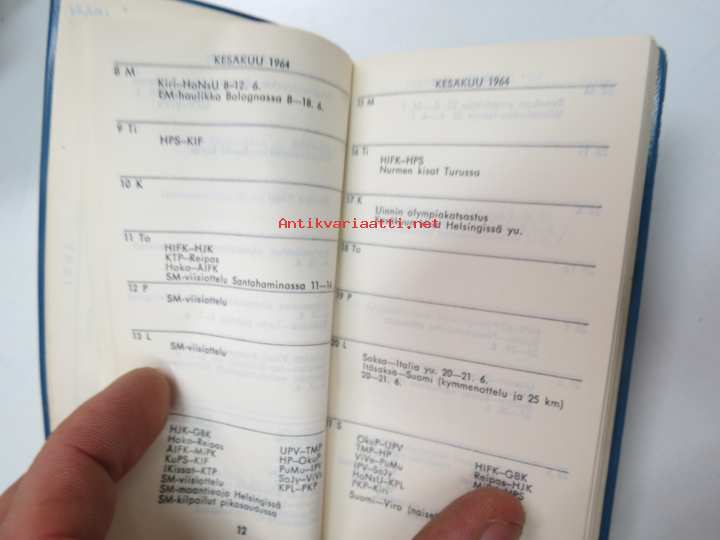 KESÄKUU 1964
8 M
Kiri–HoNsU 8–12. 6.
EM-haulikko Bolognassa 8–18. 6.
9 Ti
HPS–KIF
10 K
11 To
HIFK–HJK
KTP–Reipas
Haka–ÅIFK
SM-viisiottelu Santahaminassa 11–14
12 P
SM-viisiottelu
13 L
SM-viisiottelu
HJK–GBK
Haka–Reipas
ÅIFK–MiPK
KuPS–KIF
IKissat–KTP
SM-viisiottelu
SM-maantieajo Helsingissä
SM-kilpailut pikasoudussa
UPV–TMP
HP–OkuP
PuMu–IPV
SoJy–ViVe
KPL–PKP
12
KESÄKUU 1964
15 M
16 Ti
HIFK–HPS
Nurmen kisat Turussa
17 K
Uinnin olympiakatsastus
Helsingissä yu.
18 To
19 P
20 L
Saksa–Italia yu. 20–21. 6.
Itäsaksa–Suomi (kymmenottelu ja 25 km)
20–21. 6.
S
OkuP–UPV
TMP–HP
ViVe–PuMu
IPV–SoJy
HoNsU–KPL
PKP–Kiri
Suomi–Viro
HIFK–GBK
Reipas–HJK
Antikvariaatti.net